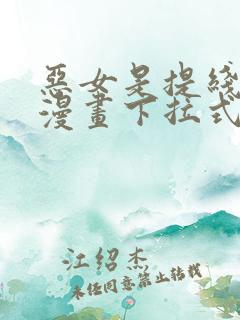 惡女是提綫
漫畫下拉式
江紹杰
未经同意禁止转载